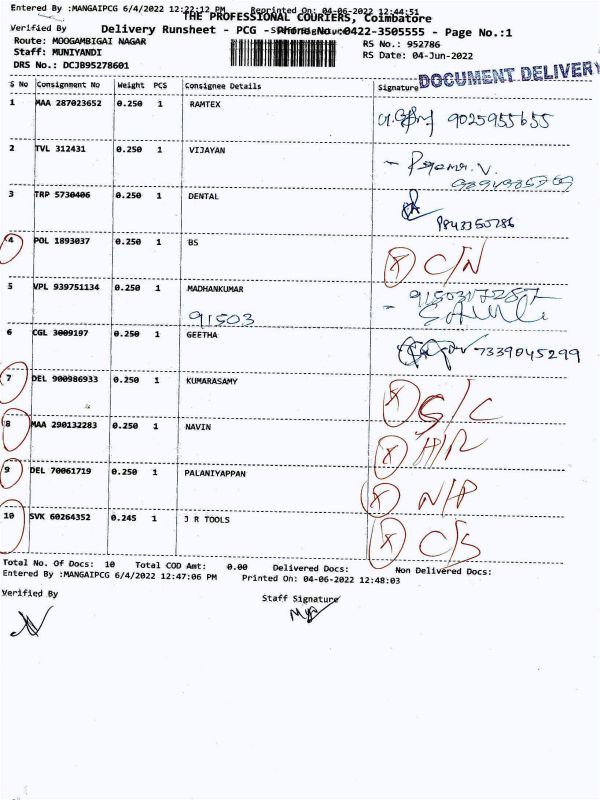 Entered By :MANGAIPCG 6/4/2022 12:22:12 PM Reprinted On: 04-06-2022 12:44:51
THE PROFESSIONAL COURIERS, Coimbatore
Verified By
Delivery Runsheet - PCG - Phone No.:0422-3505555 - Page No.:1
Route: MOOGAMBIGAI NAGAR
RS No.: 952786
Staff: MUNIYANDI
RS Date: 04-Jun-2022
DRS No.: DCJB95278601
DOCUMENT DELIVERY
S No Consignment No Weight PCS Consignee Details Signature
1 MAA 287023652 0.250 1 RAMTEX
9025955655
2 TVL 312431 0.250 1 VIJAYAN
3 TRP 5730406 0.250 1 DENTAL
9843350286
4 POL 1893037 0.250 1 BS
X C/N
5 VPL 939751134 0.250 1 MADHANKUMAR
91503
6 CGL 3009197 0.250 1 GEETHA
7339045299
7 DEL 900986933 0.250 1 KUMARASAMY
X S/C
8 MAA 290132283 0.250 1 NAVIN
X
9 DEL 70061719 0.250 1 PALANIYAPPAN
X N/P
10 SVK 60264352 0.245 1 J R TOOLS
X C/S
Total No. Of Docs: 10 Total COD Amt: 0.00 Delivered Docs: Non Delivered Docs:
Entered By :MANGAIPCG 6/4/2022 12:47:06 PM Printed On: 04-06-2022 12:48:03
Verified By
Staff Signature